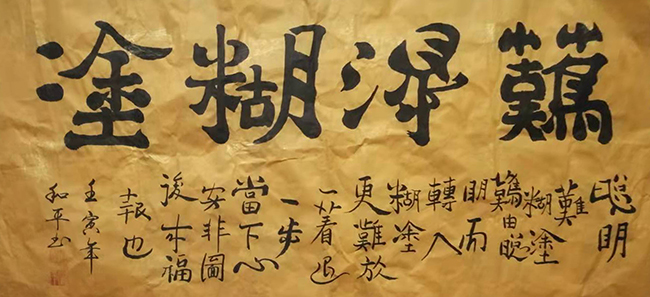 難得糊塗
聰明
難糊塗
難由聰
明而
轉入
糊塗
更難放
一著退
一步
當下心
安非圖
後来福
報也
壬寅年
和平书